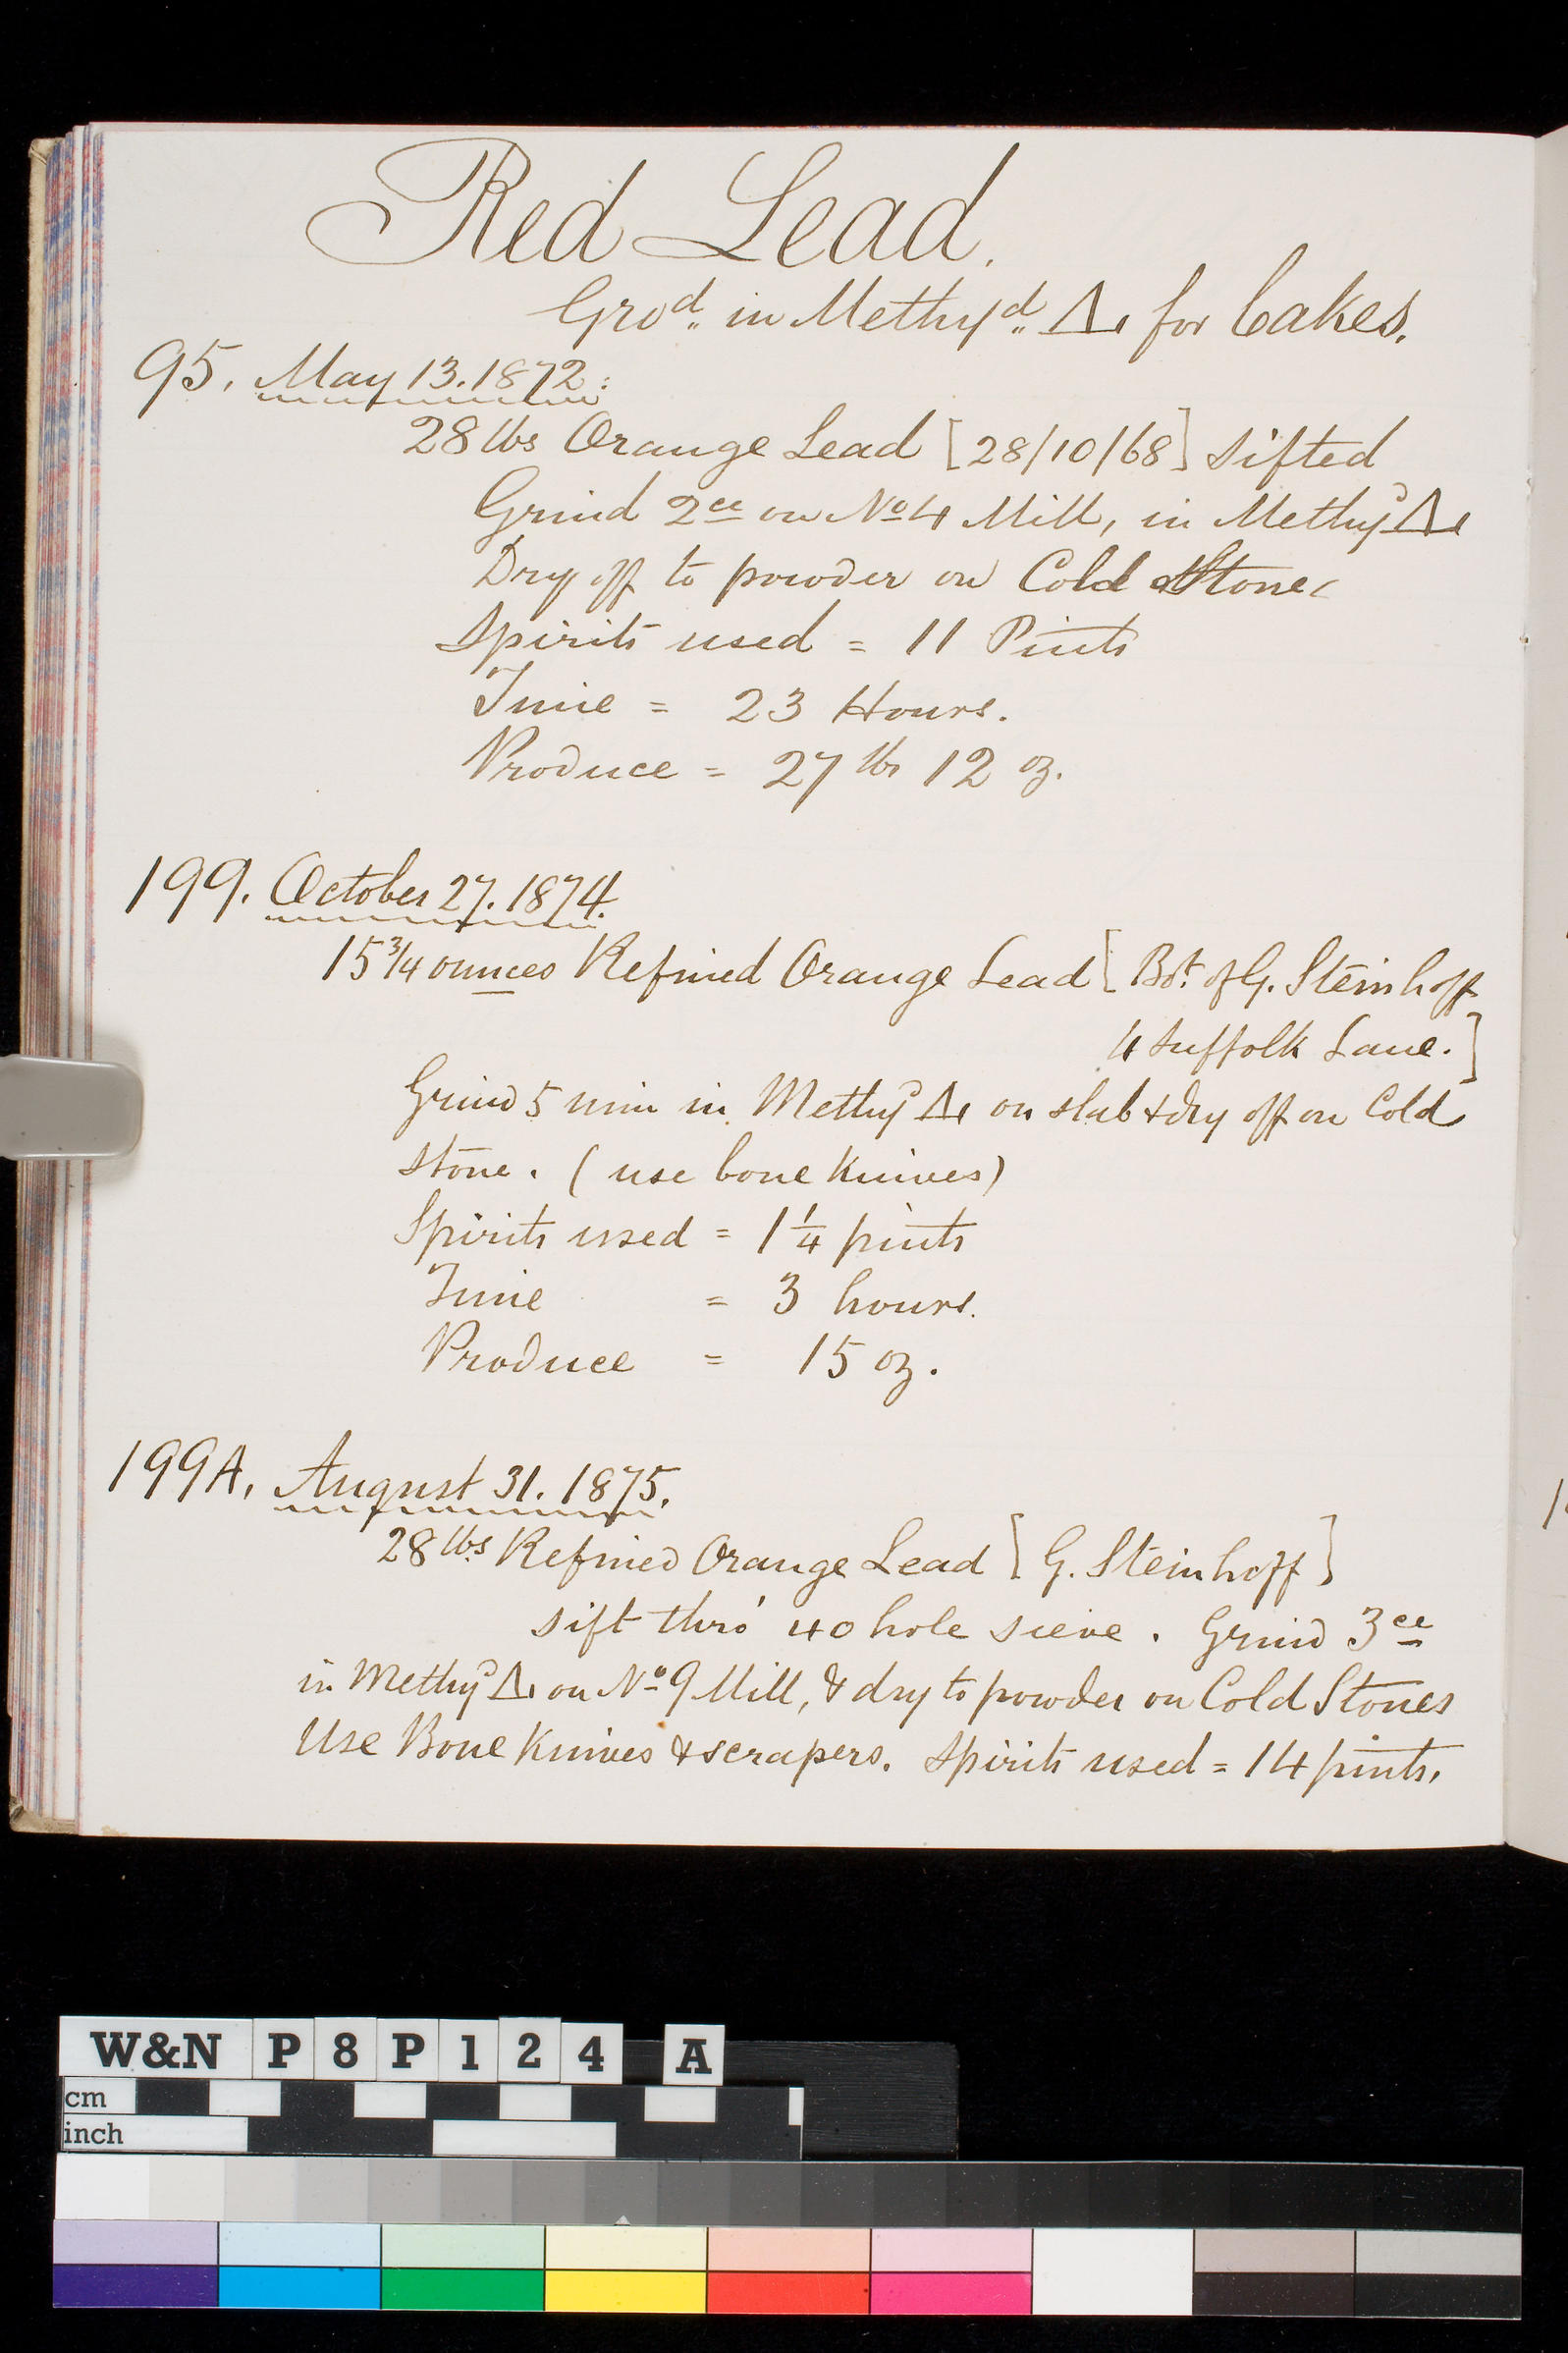 Red Lead.
Gro^d. in Methy^d. Δ, for Cakes.
95. May 13. 1872:
28 lbs Orange Lead [28/10/68] Sifted
Grind 2^ce on No 4 Mill, in Methy^d Δ,
Dry off to powder on Cold Stone
Spirits used = 11 Pints
Time = 23 Hours.
Produce = 27 lbs 12 oz.
199. October 27. 1874.
15 3/4 ounces Refined Orange Lead [Bot. of G. Steinhoff
4 Suffolk Lane.]
Grind 5 min in Methy^d Δ, on slab & dry off on Cold
stone. (use bone Knives)
Spirits used = 1 1/4 pints
Time = 3 hours.
Produce = 15 oz.
199A. August 31. 1875.
28 lbs Refined Orange Lead [G. Steinhoff]
sift thro' 40 hole sieve. Grind 3^ce
in Methy^d Δ, on No 9 Mill, & dry to powder on Cold Stones
Use Bone Knives & scrapers. Spirits used = 14 pints.
W&N P8P124 A
cm
inch